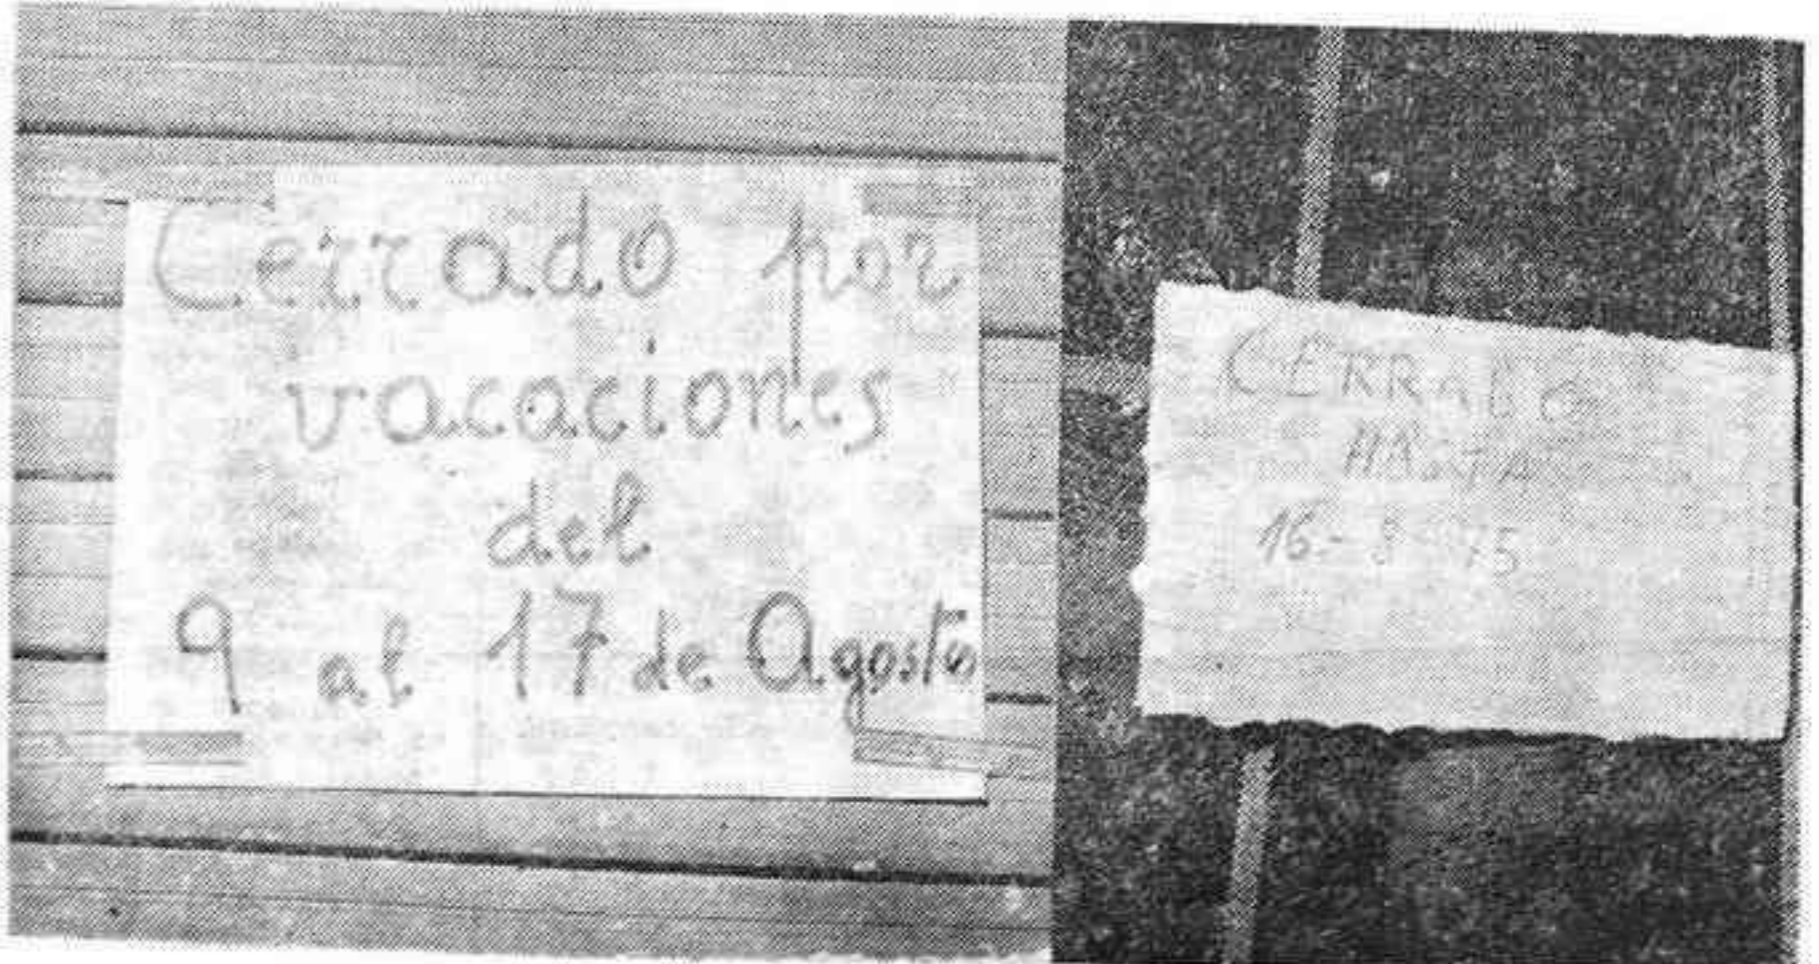 Cerrado por
vacaciones
del
9 al 17 de Agosto
CERRADO
HASTA
16-8-75